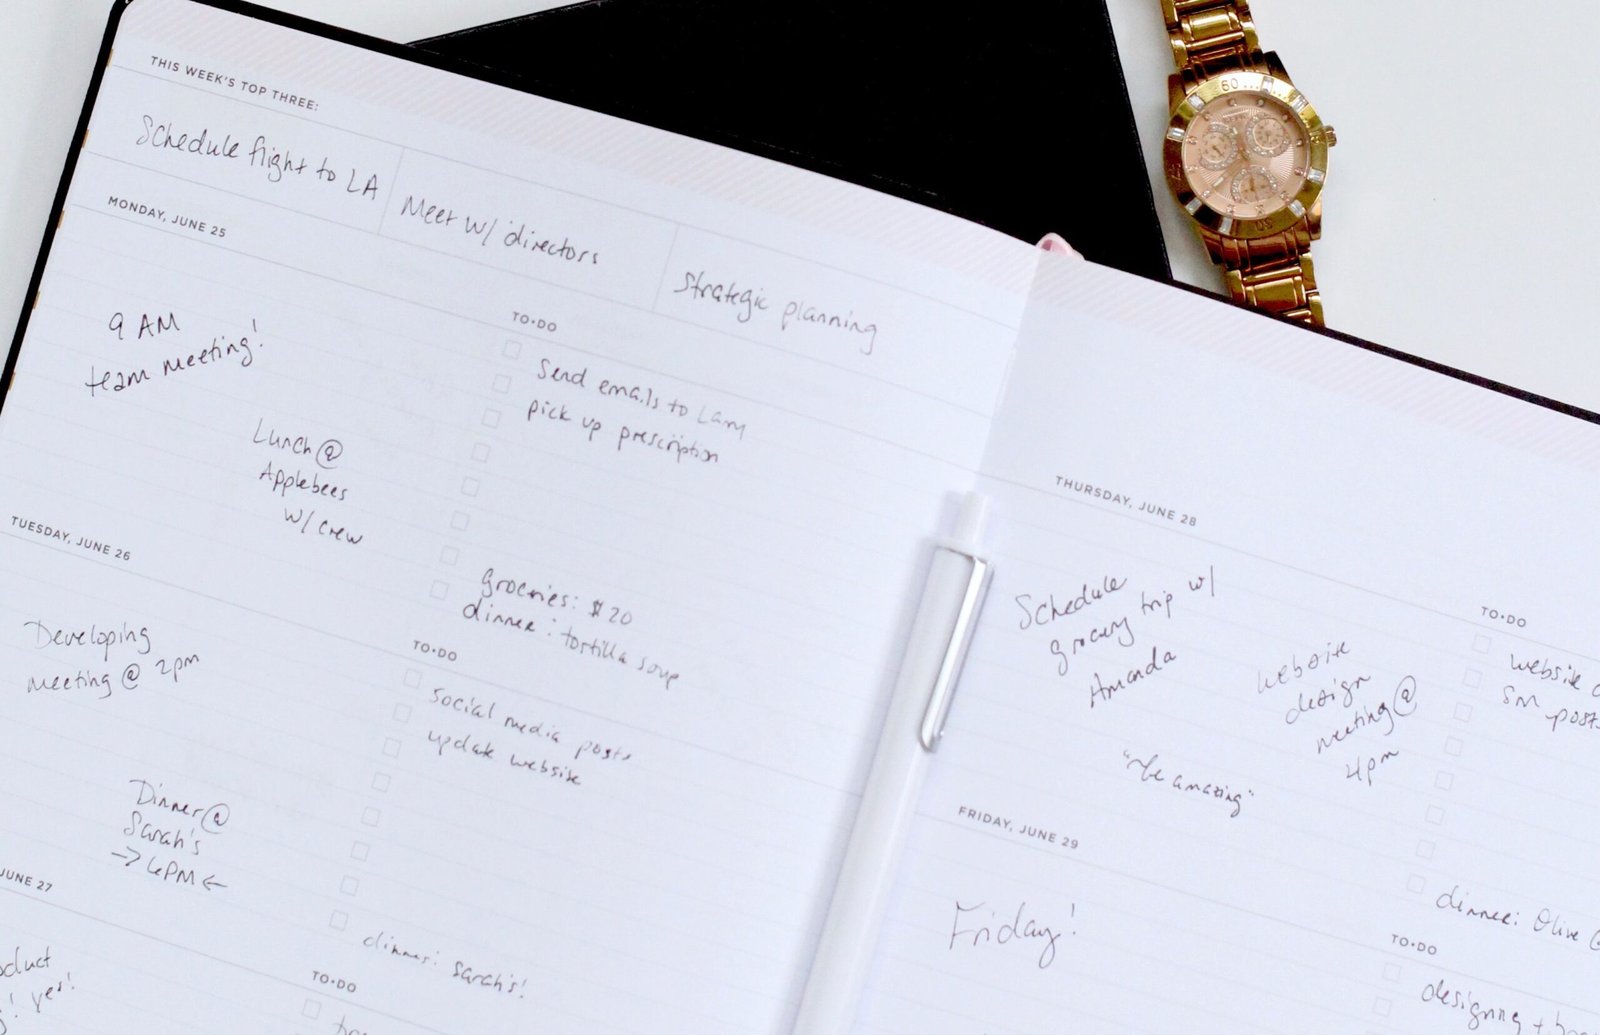 THIS WEEK'S TOP THREE:
Schedule flight to LA
Meet w/ directors
Strategic planning
MONDAY, JUNE 25
9 AM
team meeting!
Lunch @
Applebees
w/ crew
TO•DO
Send emails to
pick up prescription
groceries: $20
dinner: tortilla soup
TUESDAY, JUNE 26
Developing
meeting @ 2pm
Dinner @
Sarah's
PM
TO•DO
social media posts
update website
dinner: Sarah's!
JUNE 27
yes!
TO•DO
THURSDAY, JUNE 28
Schedule
grocery trip w/
Amanda
website
design
meeting @
4pm
"be amazing"
TO•DO
website
SM posts
dinner: Olive
FRIDAY, JUNE 29
Friday!
TO•DO
designing +
60
20